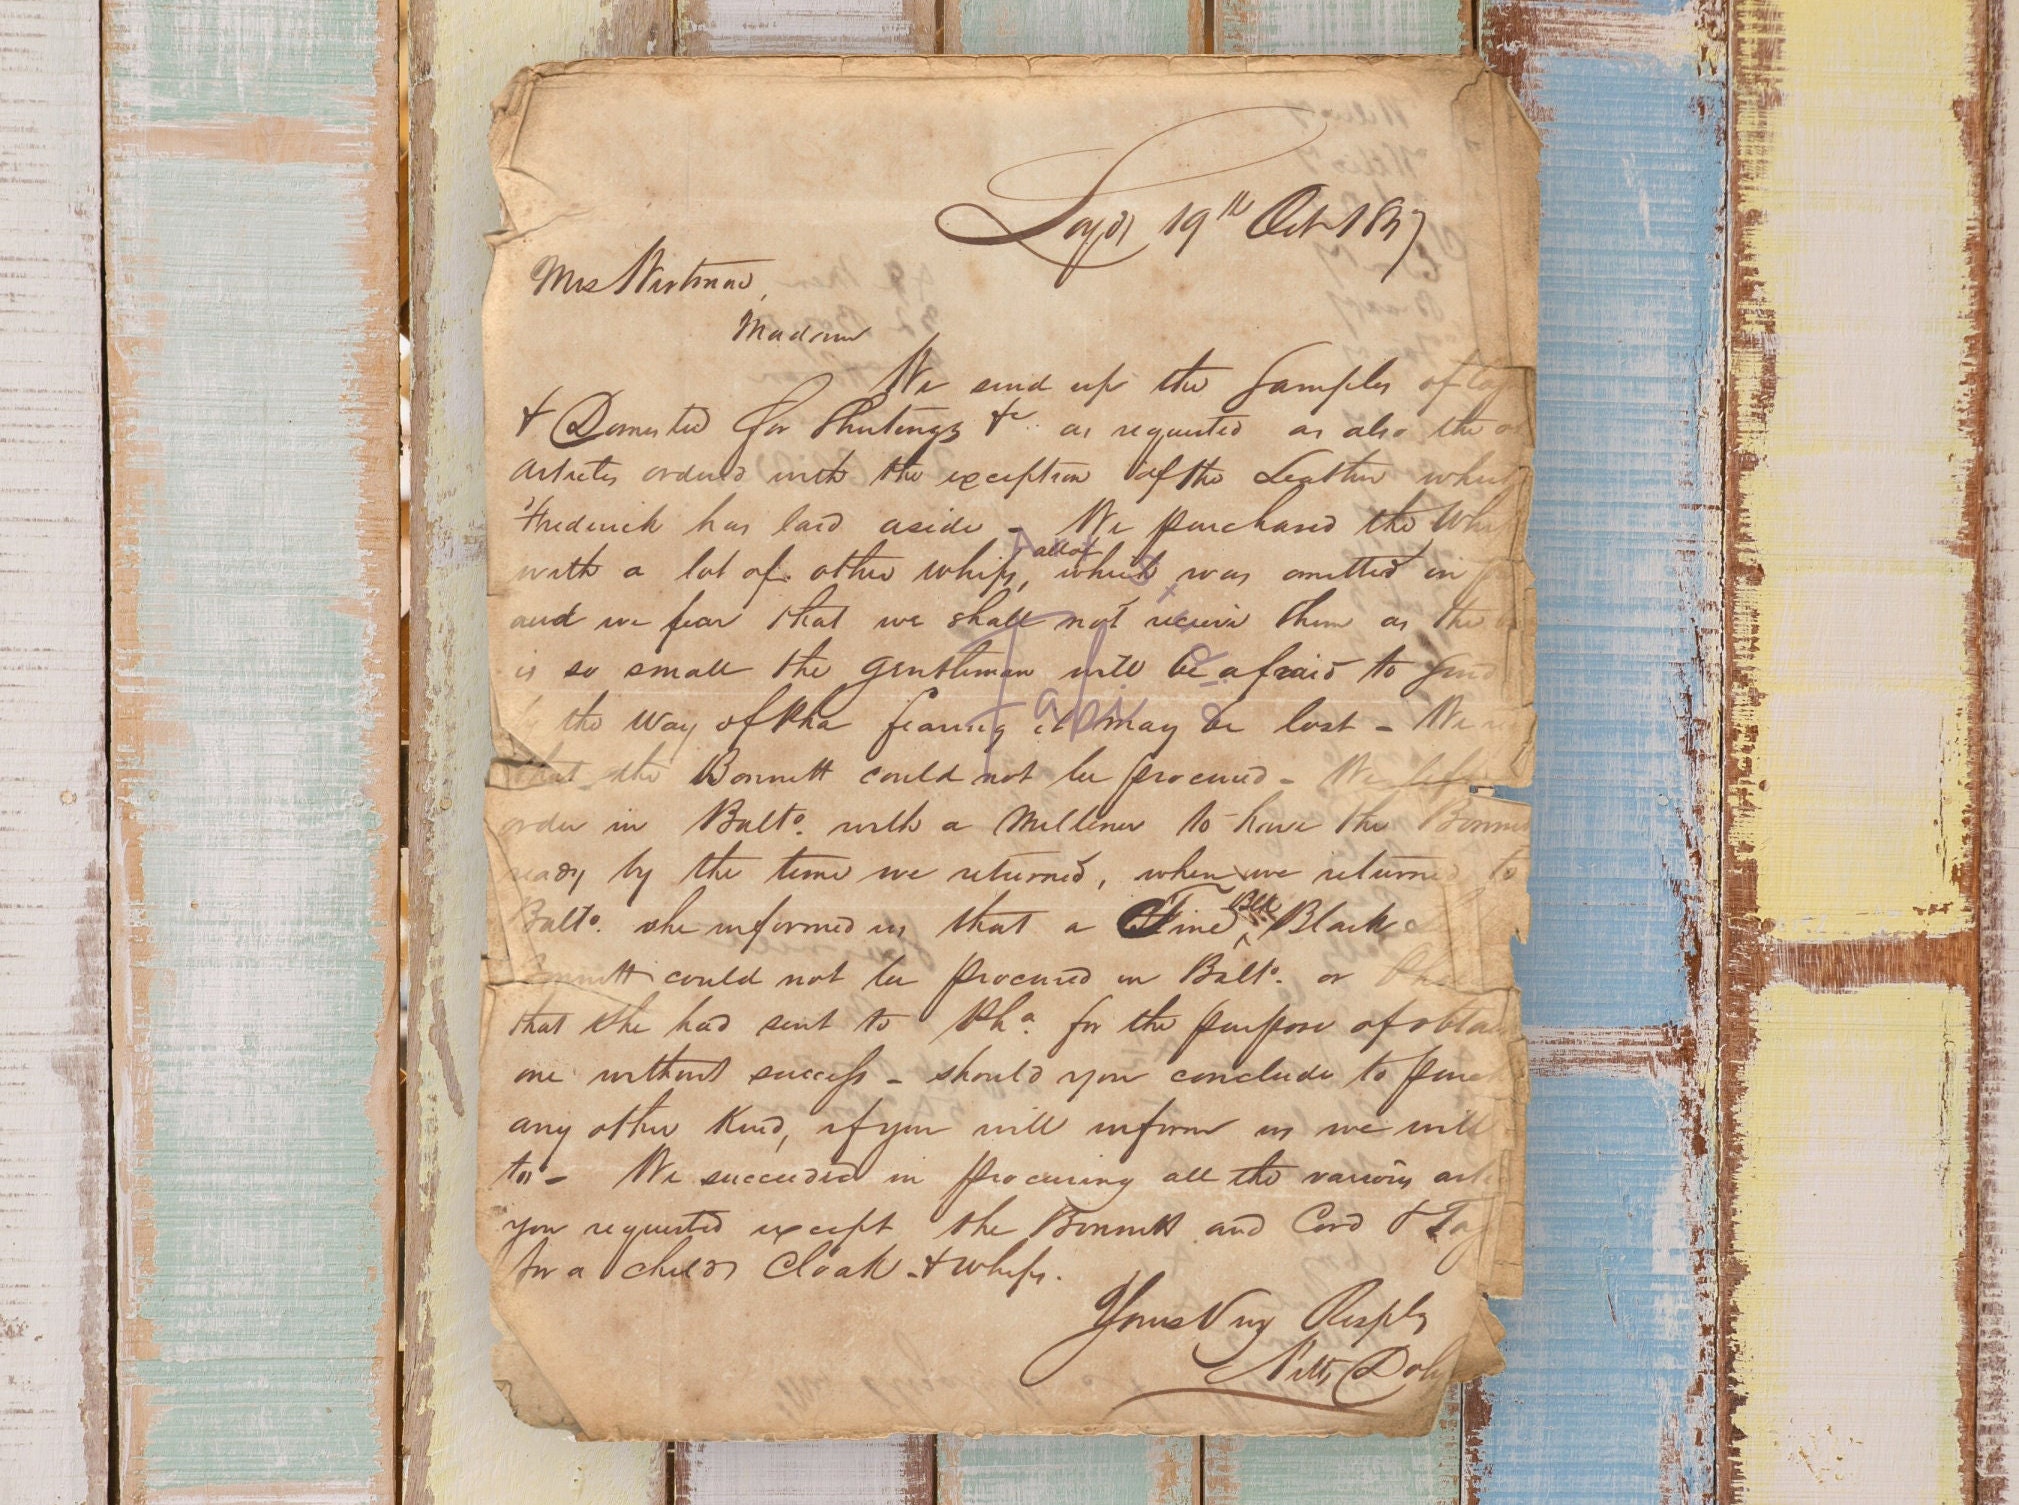 19th Oct 1837
Mrs
Madam
We send up the Samples of
& Domestic for Shirtings &c as requested as also the
articles ordered with the exception of the Leather which
Frederick has laid aside - We purchased the Whip
with a lot of other whips, all of which was omitted in
and we fear that we shall not receive them as the
is so small the gentleman will be afraid to send
the way of Pha fearing it may be lost - We
that the Bonnett could not be procured - We left
order in Balto. with a Millener to have the Bonnett
ready by the time we returned, when we returned to
Balto. she informed us that a Fine Blk Black
Bonnett could not be procured in Balto. or
that she had sent to Pha. for the purpose of obtain
one without success - should you conclude to purch
any other Kind, if you will inform us we will
to - We succeeded in procuring all the various arti
you requested except the Bonnett and Cord &
for a childs Cloak - & whips.
Yours Very Resply